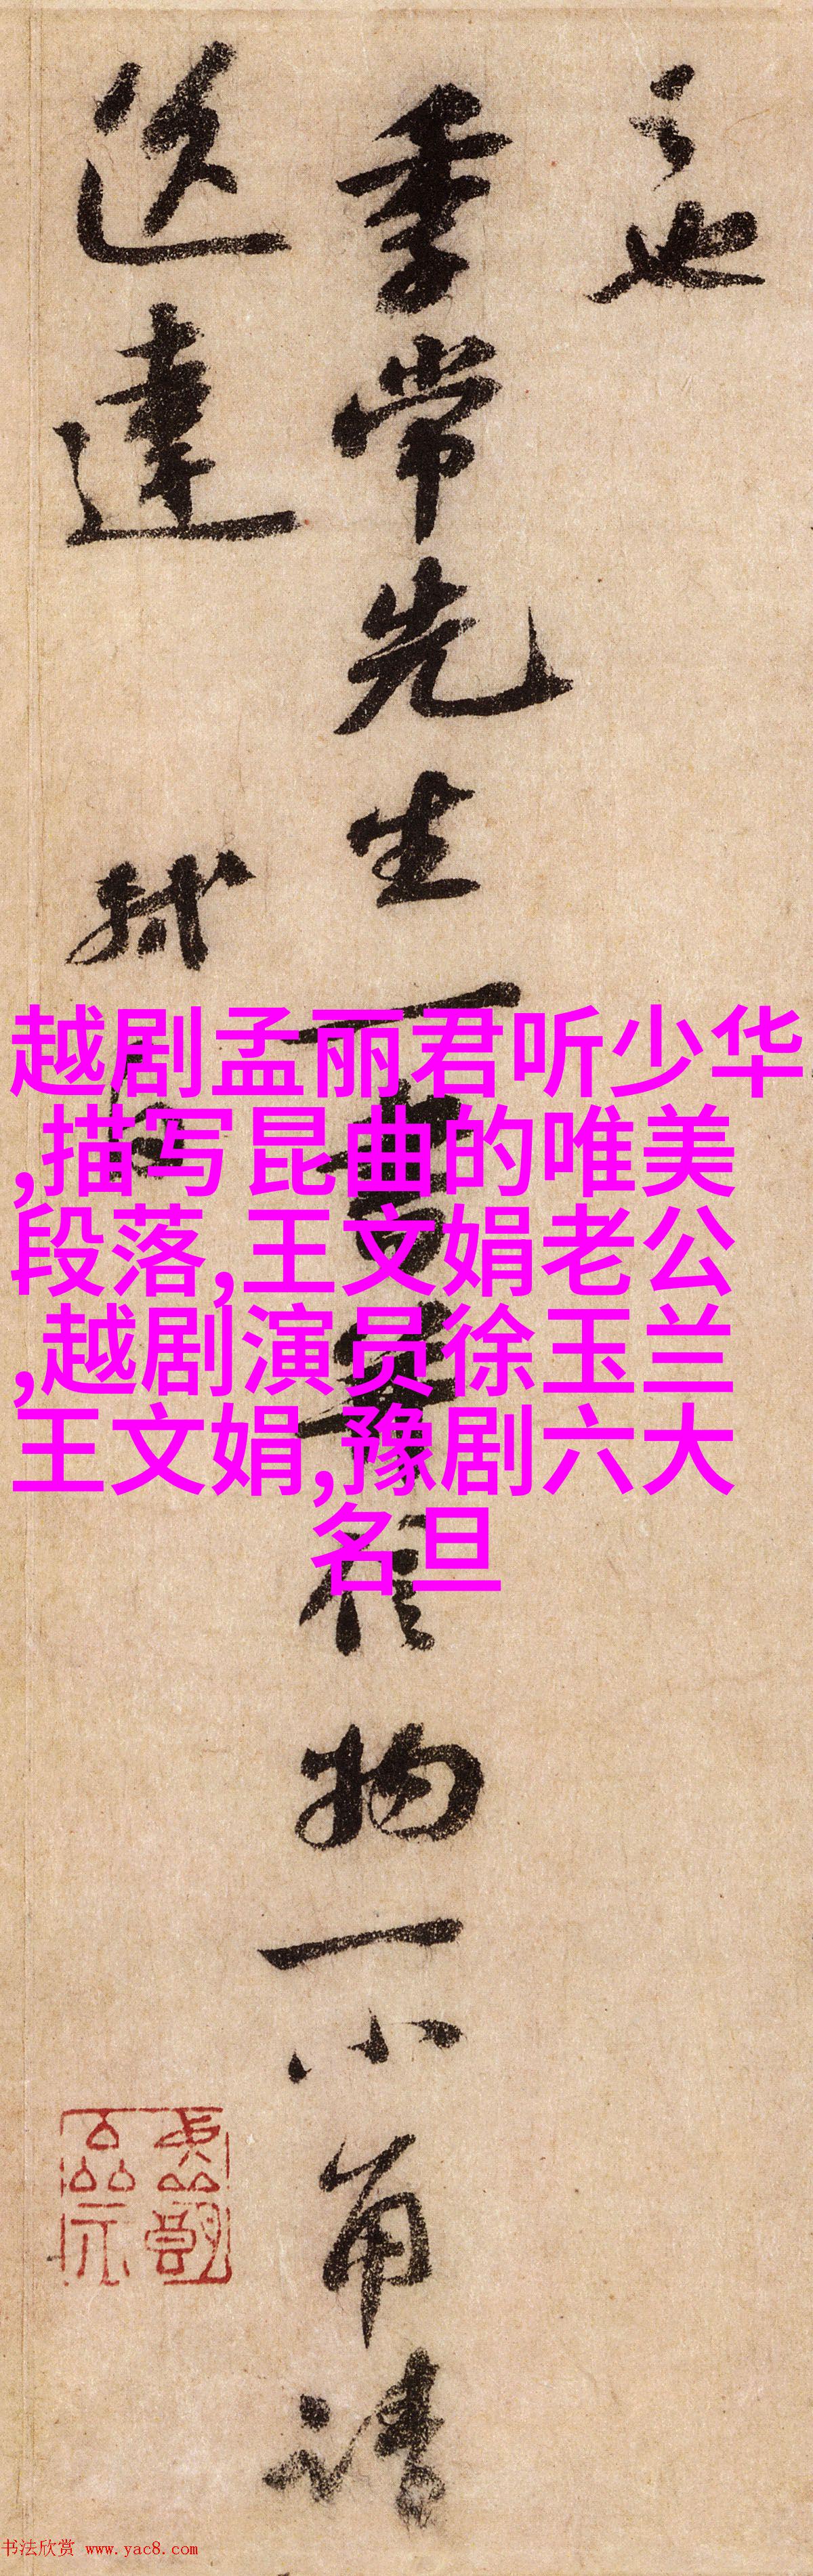 之也
季常先生一書并信物一小角請
送達 軾白
越剧孟丽君听少华
,描写昆曲的唯美
段落,王文娟老公
,越剧演员徐玉兰
王文娟,豫剧六大
名旦
书法欣赏 www.yac8.com